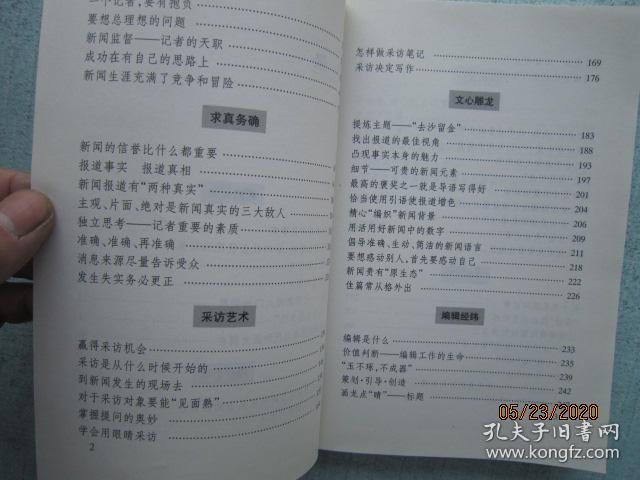 要想总理想的问题
新闻监督——记者的天职
成功在有自己的思路上
新闻生涯充满了竞争和冒险
求真务确
新闻的信誉比什么都重要
报道事实 报道真相
新闻报道有“两种真实”
主观、片面、绝对是新闻真实的三大敌人
独立思考——记者重要的素质
准确、准确、再准确
消息来源尽量告诉受众
发生失实务必更正
采访艺术
赢得采访机会
采访是从什么时候开始的
到新闻发生的现场去
对于采访对象要能“见面熟”
掌握提问的奥妙
学会用眼睛采访
2
怎样做采访笔记 169
采访决定写作 176
文心雕龙
提炼主题——“去沙留金” 183
找出报道的最佳视角 188
凸现事实本身的魅力 194
细节——可贵的新闻元素 197
最高的褒奖之一就是导语写得好 201
恰当使用引语使报道增色 204
精心“编织”新闻背景 207
用活用好新闻中的数字 209
倡导准确、生动、简洁的新闻语言 211
要想感动别人,首先要感动自己 218
新闻贵有“原生态” 222
佳篇常从格外出 226
编辑经纬
编辑是什么 233
价值判断——编辑工作的生命 235
“玉不琢,不成器” 239
策划·引导·创造 242
画龙点“睛”——标题
05/23/2020
孔夫子旧书网
www.kongfz.com